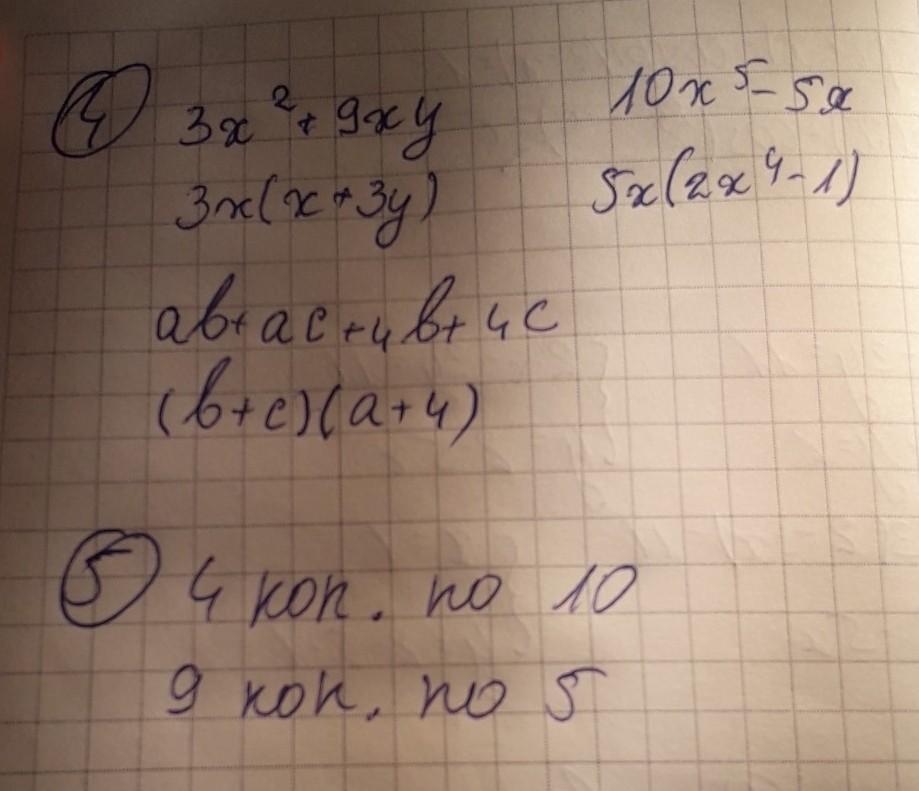 ④ 3x² + 9xy 10x⁵ - 5x
3x(x + 3y) 5x(2x⁴ - 1)
ab + ac + 4b + 4c
(b + c)(a + 4)
⑤ 4 коп. по 10
9 коп. по 5